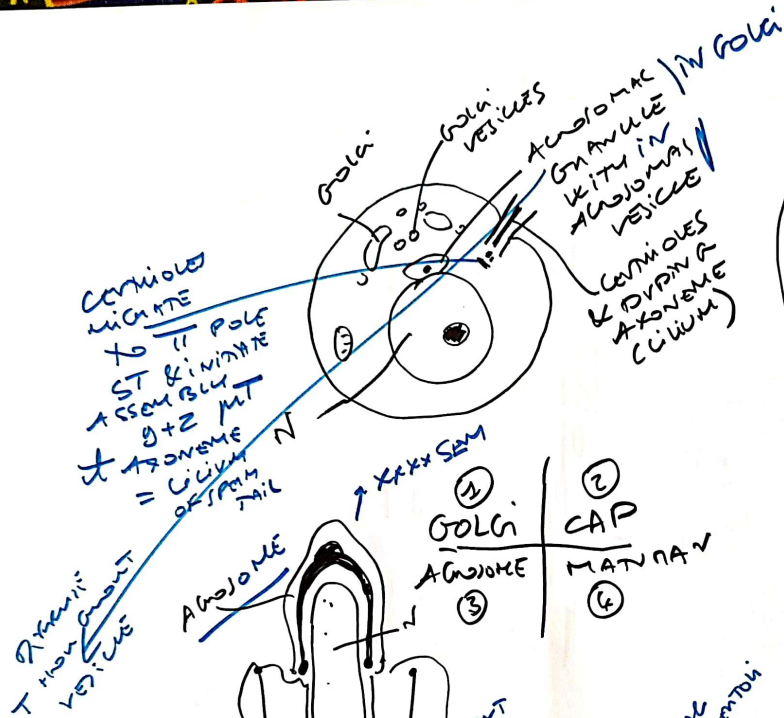 GOLGI
GOLGI
VESICLES
ACROSOMAL
GRANULE
WITHIN
ACROSOMAL
VESICLE
IN GOLGI
CENTRIOLES
& DVPING
AXONEME
(CILIUM)
CENTRIOLES
MIGRATE
TO II POLE
ST & INITIATE
ASSEMBLY
9+2 MT
AXONEME
= CILIUM
OF SPERM
TAIL
N
XXXX SEM
①
GOLGI
②
CAP
ACROSOME
③
MATURAN
④
ACROSOME
N
VESICLE